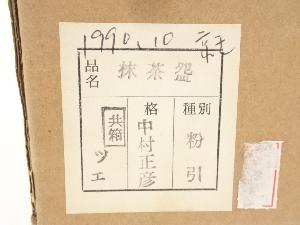 1990.10
品名
抹茶盌
種別
粉引
格
中村正彦
共箱
ツエ